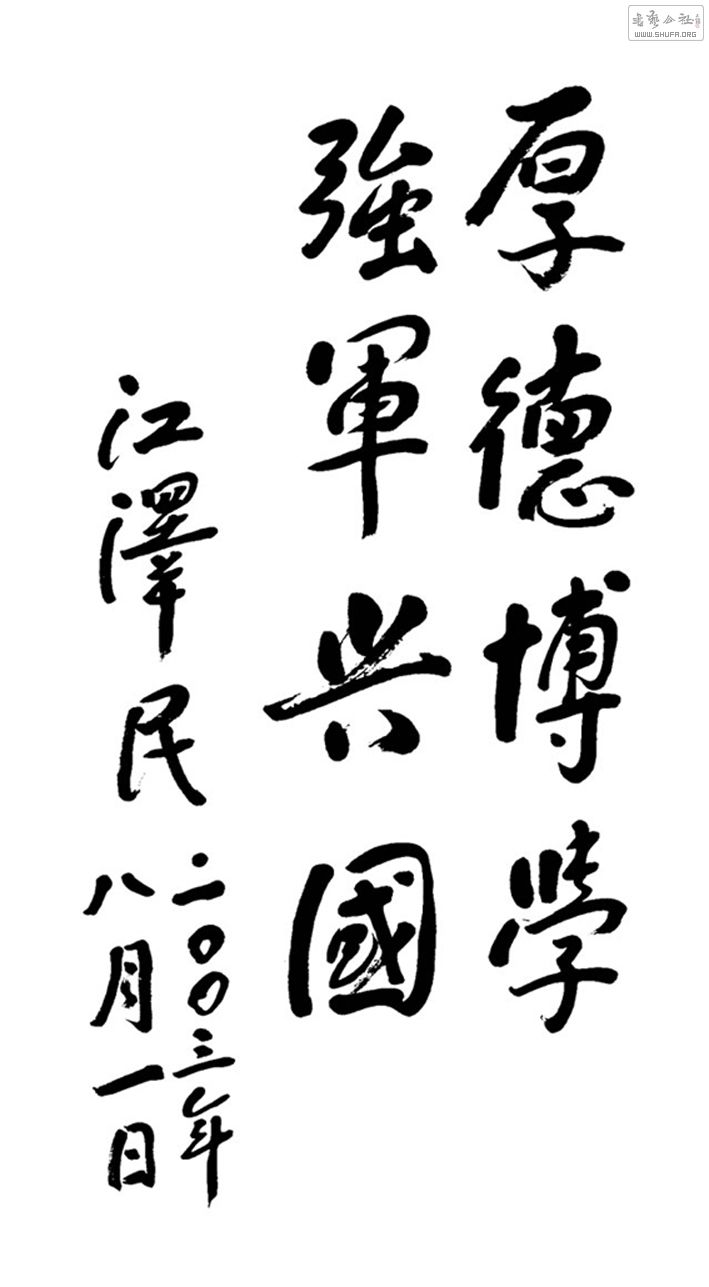 厚德博學
強軍興國
江澤民
二〇〇三年
八月一日
WWW.SHUFA.ORG